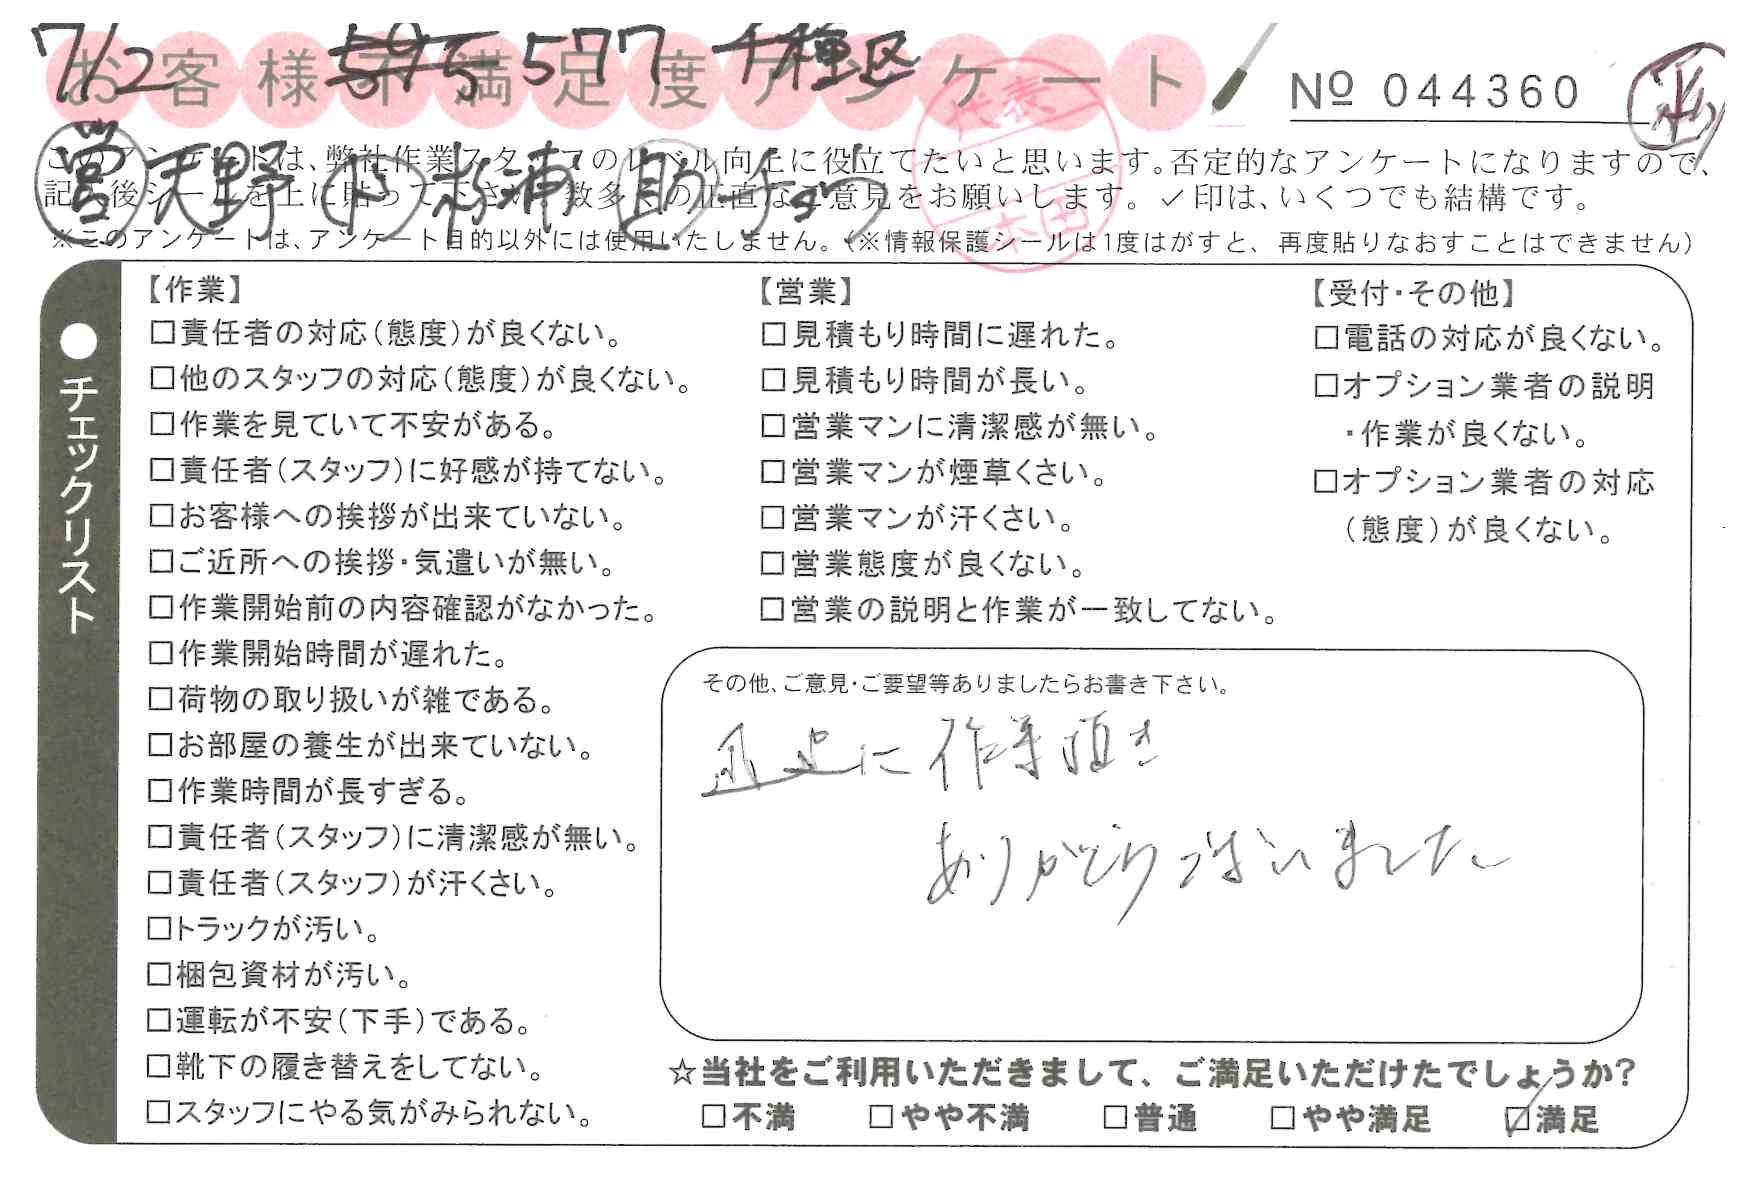 7/2 595 577 千種区
お客様不満足度アンケート
№ 044360
このアンケートは、弊社作業スタッフのレベル向上に役立てたいと思います。否定的なアンケートになりますので、
記入後シールを上に貼って下さい。数多くの正直なご意見をお願いします。✓印は、いくつでも結構です。
営 天野 杉浦 助 チョウ
代表
本田
※このアンケートは、アンケート目的以外には使用いたしません。(※情報保護シールは1度はがすと、再度貼りなおすことはできません)
●チェックリスト
【作業】
□責任者の対応(態度)が良くない。
□他のスタッフの対応(態度)が良くない。
□作業を見ていて不安がある。
□責任者(スタッフ)に好感が持てない。
□お客様への挨拶が出来ていない。
□ご近所への挨拶・気遣いが無い。
□作業開始前の内容確認がなかった。
□作業開始時間が遅れた。
□荷物の取り扱いが雑である。
□お部屋の養生が出来ていない。
□作業時間が長すぎる。
□責任者(スタッフ)に清潔感が無い。
□責任者(スタッフ)が汗くさい。
□トラックが汚い。
□梱包資材が汚い。
□運転が不安(下手)である。
□靴下の履き替えをしてない。
□スタッフにやる気がみられない。
【営業】
□見積もり時間に遅れた。
□見積もり時間が長い。
□営業マンに清潔感が無い。
□営業マンが煙草くさい。
□営業マンが汗くさい。
□営業態度が良くない。
□営業の説明と作業が一致してない。
【受付・その他】
□電話の対応が良くない。
□オプション業者の説明
・作業が良くない。
□オプション業者の対応
(態度)が良くない。
その他、ご意見・ご要望等ありましたらお書き下さい。
迅速に作業頂き
ありがとうございました
☆当社をご利用いただきまして、ご満足いただけたでしょうか?
□不満 □やや不満 □普通 □やや満足 ☑満足